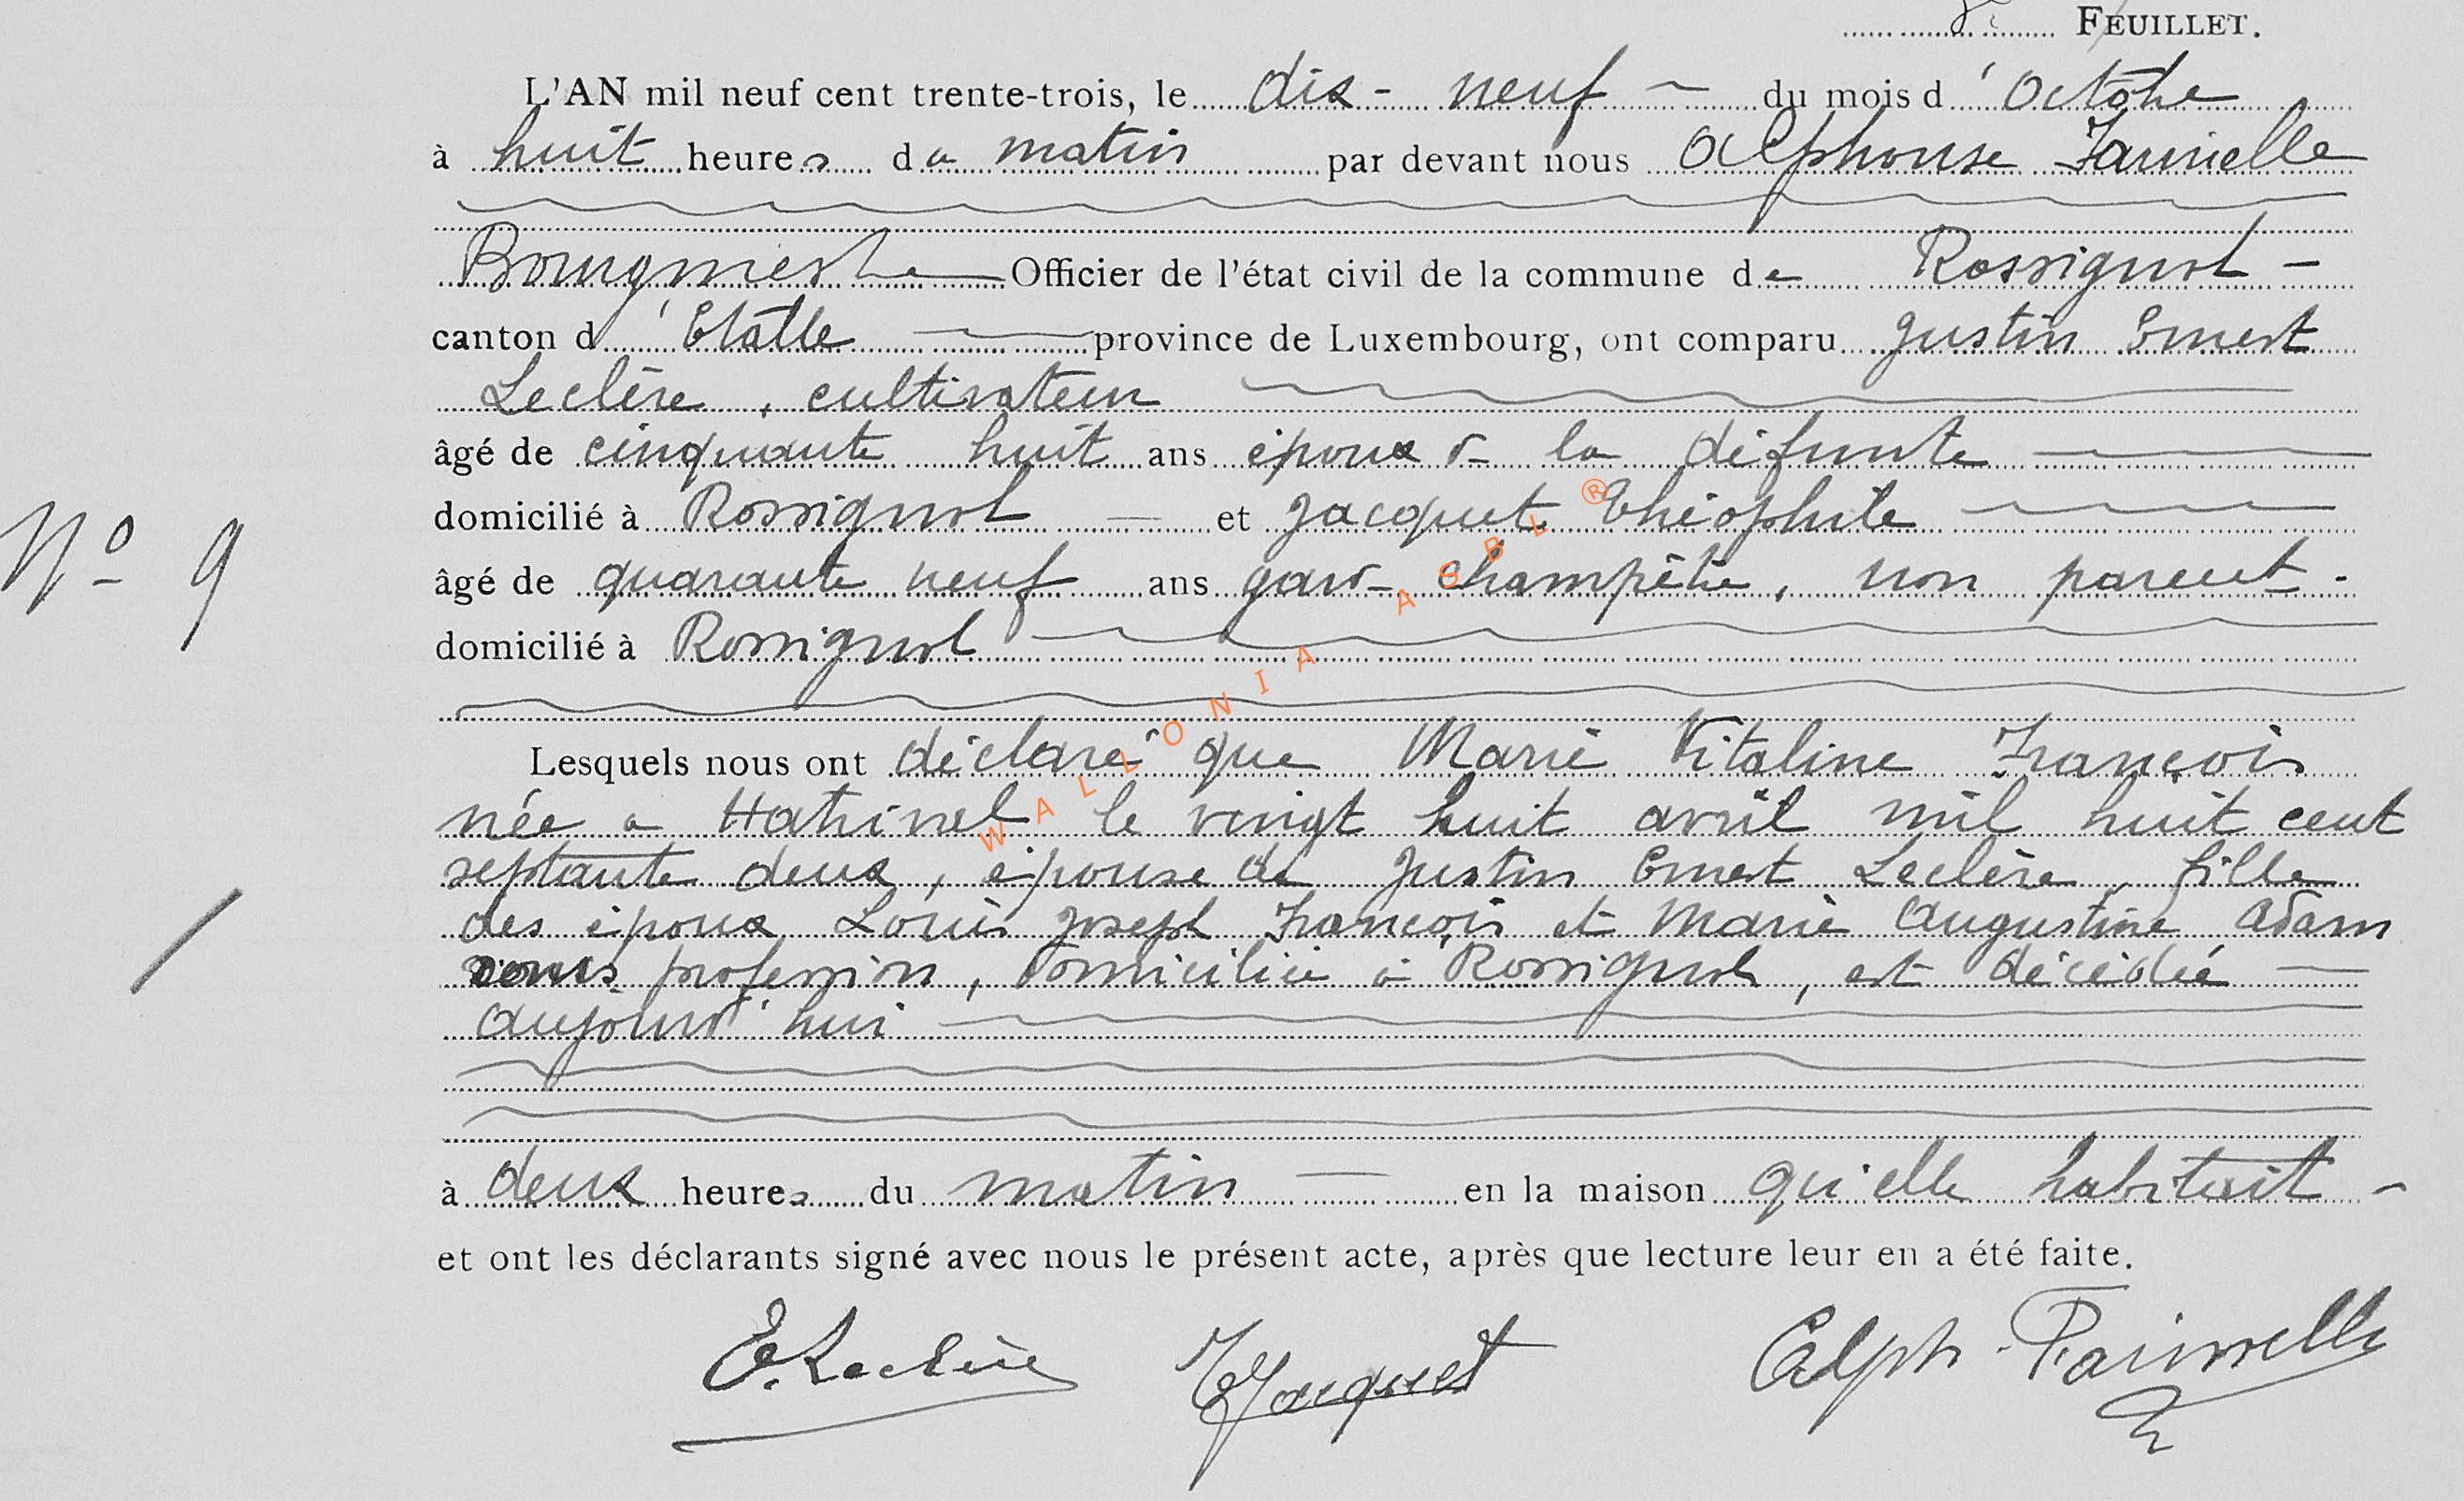 FEUILLET.
L'AN mil neuf cent trente-trois, le dix-neuf du mois d'Octobre
à huit heures du matin par devant nous Alphonse
Bourgmestre Officier de l'état civil de la commune de Rossignol
canton d'Etalle province de Luxembourg, ont comparu Justin Ernest
Leclère, cultivateur
âgé de cinquante huit ans époux de la défunte
domicilié à Rossignol et Jacquet Théophile
N° 9
âgé de quarante neuf ans garde champêtre, non parent.
domicilié à Rossignol
Lesquels nous ont déclaré que Marie Vitaline François
née à Hatrival le vingt huit avril mil huit cent
septante deux, épouse de Justin Ernest Leclère, fille
des époux Louis Joseph François et Marie Augustine Adam
sans profession, domiciliée à Rossignol, est décédée
aujourd'hui
à deux heures du matin en la maison qu'elle habitait
et ont les déclarants signé avec nous le présent acte, après que lecture leur en a été faite.
E. Leclère Jacquet Alph.
WALLONIA ASBL ®